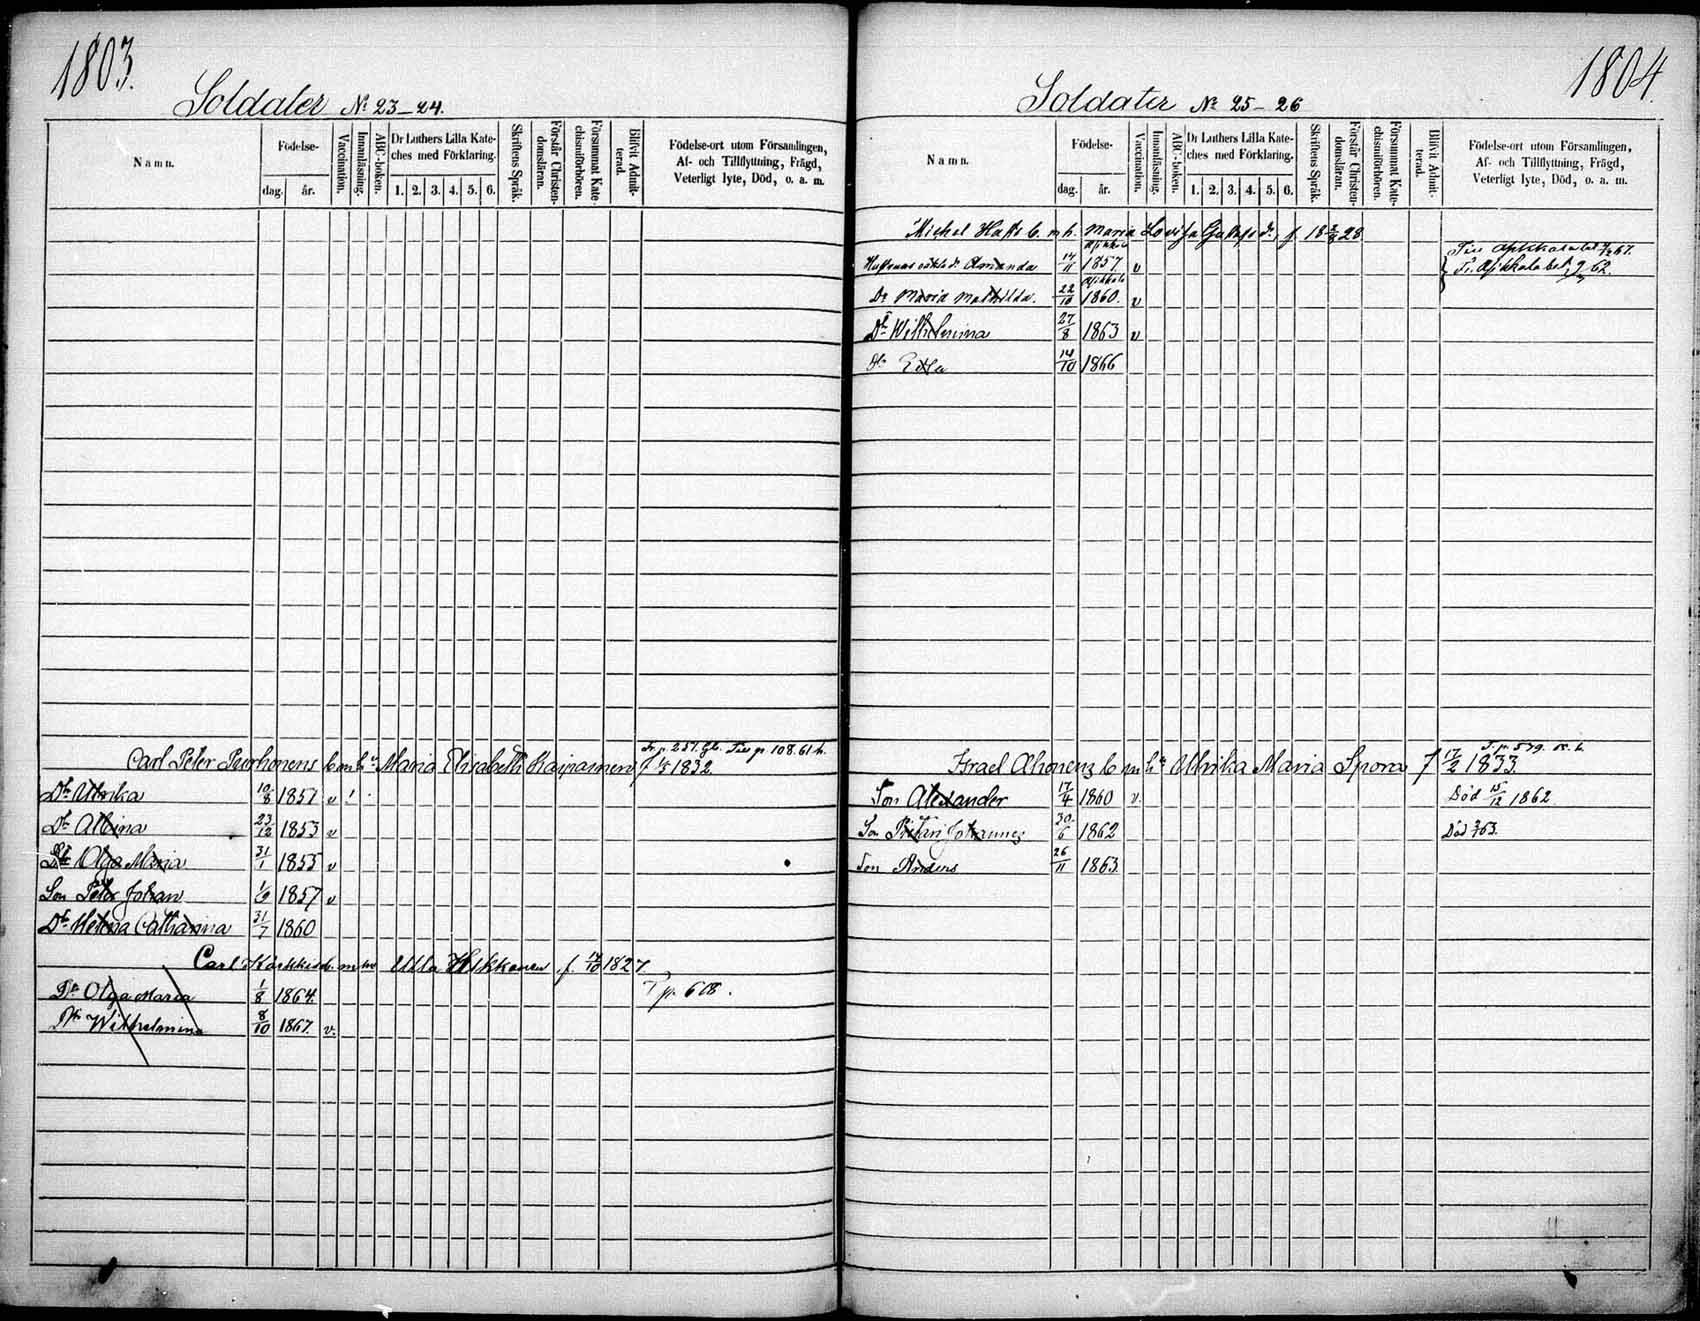 1803.
Soldater No 23-24.
Namn.
Födelse-
dag.
år.
Vaccination.
Innanläsning.
ABC-boken.
Dr Luthers Lilla Kate-
ches med Förklaring.
1. 2. 3. 4. 5. 6.
Skriftens Språk.
Förstår Christen-
domsläran.
Försummat Kate-
chismiförhören.
Blifvit Admit-
terad.
Födelse-ort utom Församlingen,
Af- och Tillflyttning, Frägd,
Veterligt lyte, Död, o. a. m.
Fr. p. 251. Gb. p. 108. 61 h.
Carl Peter Purhonens b m h Maria Elisabeth Kaipainen f 1/5 1832.
Dr Ulrika 10/8 1851 v
Dr Albina 23/12 1853 v
Dr Olga Maria 31/1 1855 v
Son Peter Johan 1/9 1857 v
Dr Helena Catharina 31/7 1860
Carl b. m. Ulla Hikkanen f. 1827.
Dr Olga Maria 1/8 1864. T p. 608.
Dr Wilhelmina 8/10 1867. v.
1804.
Soldater No 25-26
Namn.
Födelse-
dag.
år.
Vaccination.
Innanläsning.
ABC-boken.
Dr Luthers Lilla Kate-
ches med Förklaring.
1. 2. 3. 4. 5. 6.
Skriftens Språk.
Förstår Christen-
domsläran.
Försummat Kate-
chismiförhören.
Blifvit Admit-
terad.
Födelse-ort utom Församlingen,
Af- och Tillflyttning, Frägd,
Veterligt lyte, Död, o. a. m.
Michel b. m h. Maria Lovisa f. 1828
Amanda 14/11 1857. v
Dr Maria Mathilda. 22/10 1860. v
Dr Wilhelmina 27/8 1863 v
Dr Edla 14/10 1866
T. p. 579.
Israel Ahonens b m h Ulrika Maria Spora f 17/2 1833.
Son Alexander 17/4 1860 v. Död 15/12 1862
Son Petari Johannes 30/6 1862 Död 63.
Son Anders 26/11 1863.